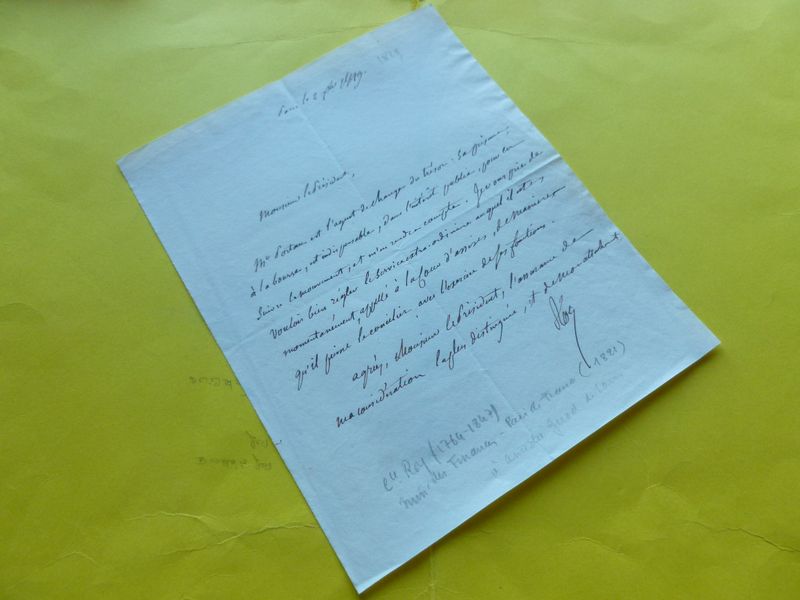 Paris le 2 1819
1819
Monsieur le Président,
Mr est l'agent de change du trésor. Sa présence,
à la bourse, est indispensable, dans l'intérêt public, pour en
suivre le mouvement, et m'en rendre compte. Je vous prie de
vouloir bien régler le service auquel il est,
momentanément, appellé à la Cour d'assises, de manière
qu'il puisse le concilier avec l'exercice de ses fonctions.
agréez, Monsieur le Président, l'assurance de
ma considération la plus distinguée, et de mon attachement.
Roy
Cte Roy (1764-1847)
min. des Finances - Pair de France (1821)